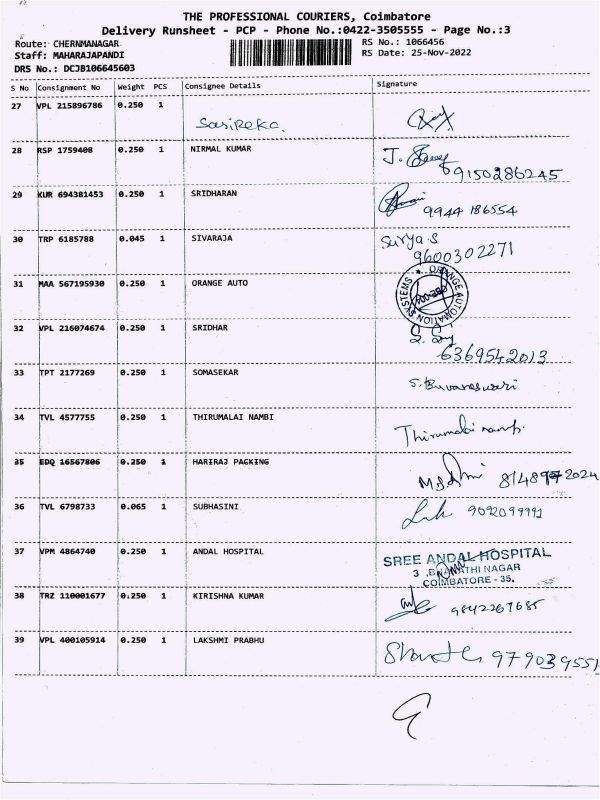 THE PROFESSIONAL COURIERS, Coimbatore
Delivery Runsheet - PCP - Phone No.:0422-3505555 - Page No.:3
Route: CHERNMANAGAR RS No.: 1066456
Staff: MAHARAJAPANDI RS Date: 25-Nov-2022
DRS No.: DCJB106645603
S No Consignment No Weight PCS Consignee Details Signature
27 VPL 215896786 0.250 1 Sasireka.
28 RSP 1759408 0.250 1 NIRMAL KUMAR J.
9150286245
29 KUR 694381453 0.250 1 SRIDHARAN
9944 186554
30 TRP 6185788 0.045 1 SIVARAJA Surya S
9600302271
31 MAA 567195930 0.250 1 ORANGE AUTO
ORANGE AUTOMATION SYSTEMS
32 VPL 216074674 0.250 1 SRIDHAR
6369542013
33 TPT 2177269 0.250 1 SOMASEKAR S. Buvaneswari
34 TVL 4577755 0.250 1 THIRUMALAI NAMBI Thirumalai
35 EDQ 16567806 0.250 1 HARIRAJ PACKING
36 TVL 6798733 0.065 1 SUBHASINI 9092099991
37 VPM 4864740 0.250 1 ANDAL HOSPITAL SREE ANDAL HOSPITAL
3, BHARATHI NAGAR
COIMBATORE - 35.
38 TRZ 110001677 0.250 1 KIRISHNA KUMAR 9842267685
39 VPL 400105914 0.250 1 LAKSHMI PRABHU 979039551